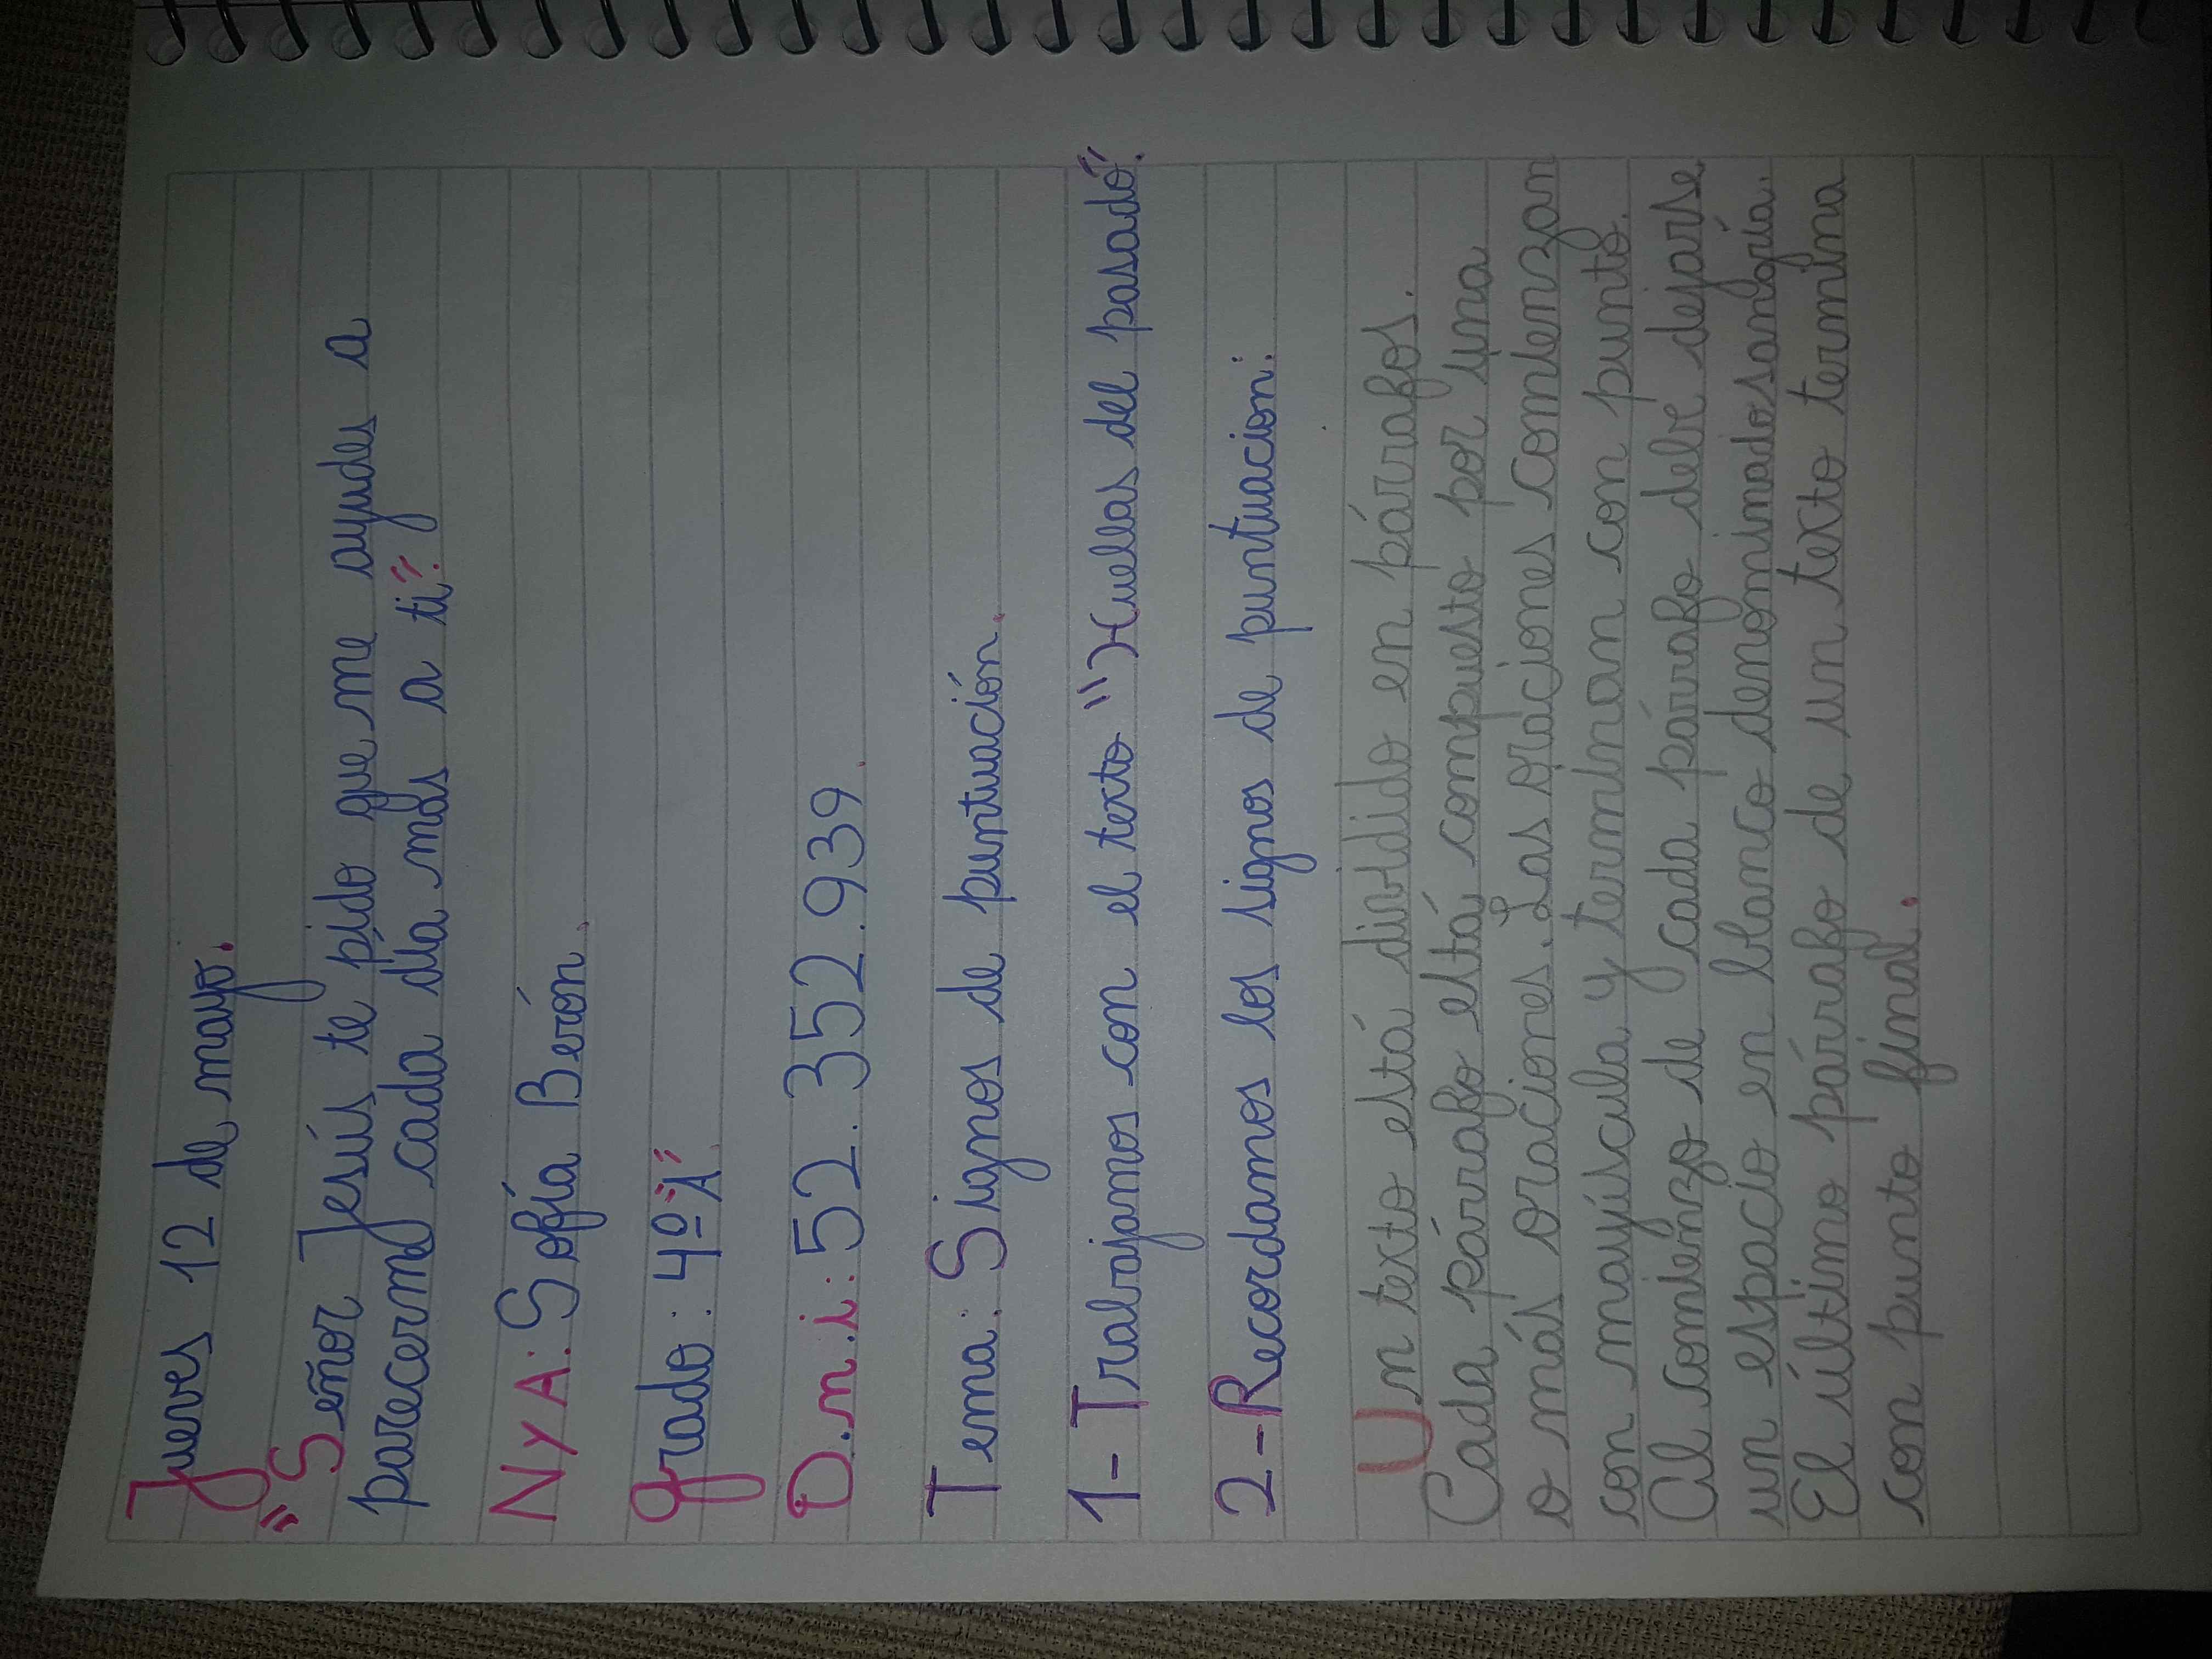 Jueves 12 de mayo.
"Señor Jesús te pido que me ayudes a
parecerme cada día más a ti".
N y A: Sofía Berón.
Grado: 4º "A".
D.n.i: 52.352.939.
Tema: Signos de puntuación.
1- Trabajamos con el texto "Huellas del pasado".
2- Recordamos los signos de puntuacion:
Un texto está dividido en párrafos.
Cada párrafo está compuesto por una
o más oraciones. Las oraciones comienzan
con mayúscula y terminan con punto.
Al comienzo de cada párrafo debe dejarse
un espacio en blanco denominado sangría.
El último párrafo de un texto termina
con punto final.